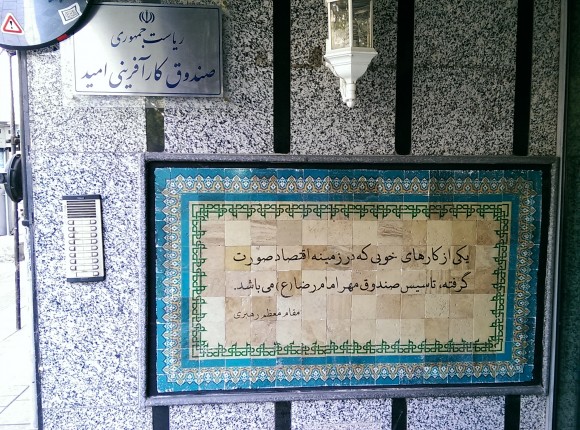 ریاست جمهوری
صندوق کارآفرینی امید
یکی از کارهای خوبی که در زمینه اقتصاد صورت
گرفته، تاسیس صندوق مهر امام رضا (ع) می باشد.
مقام معظم رهبری